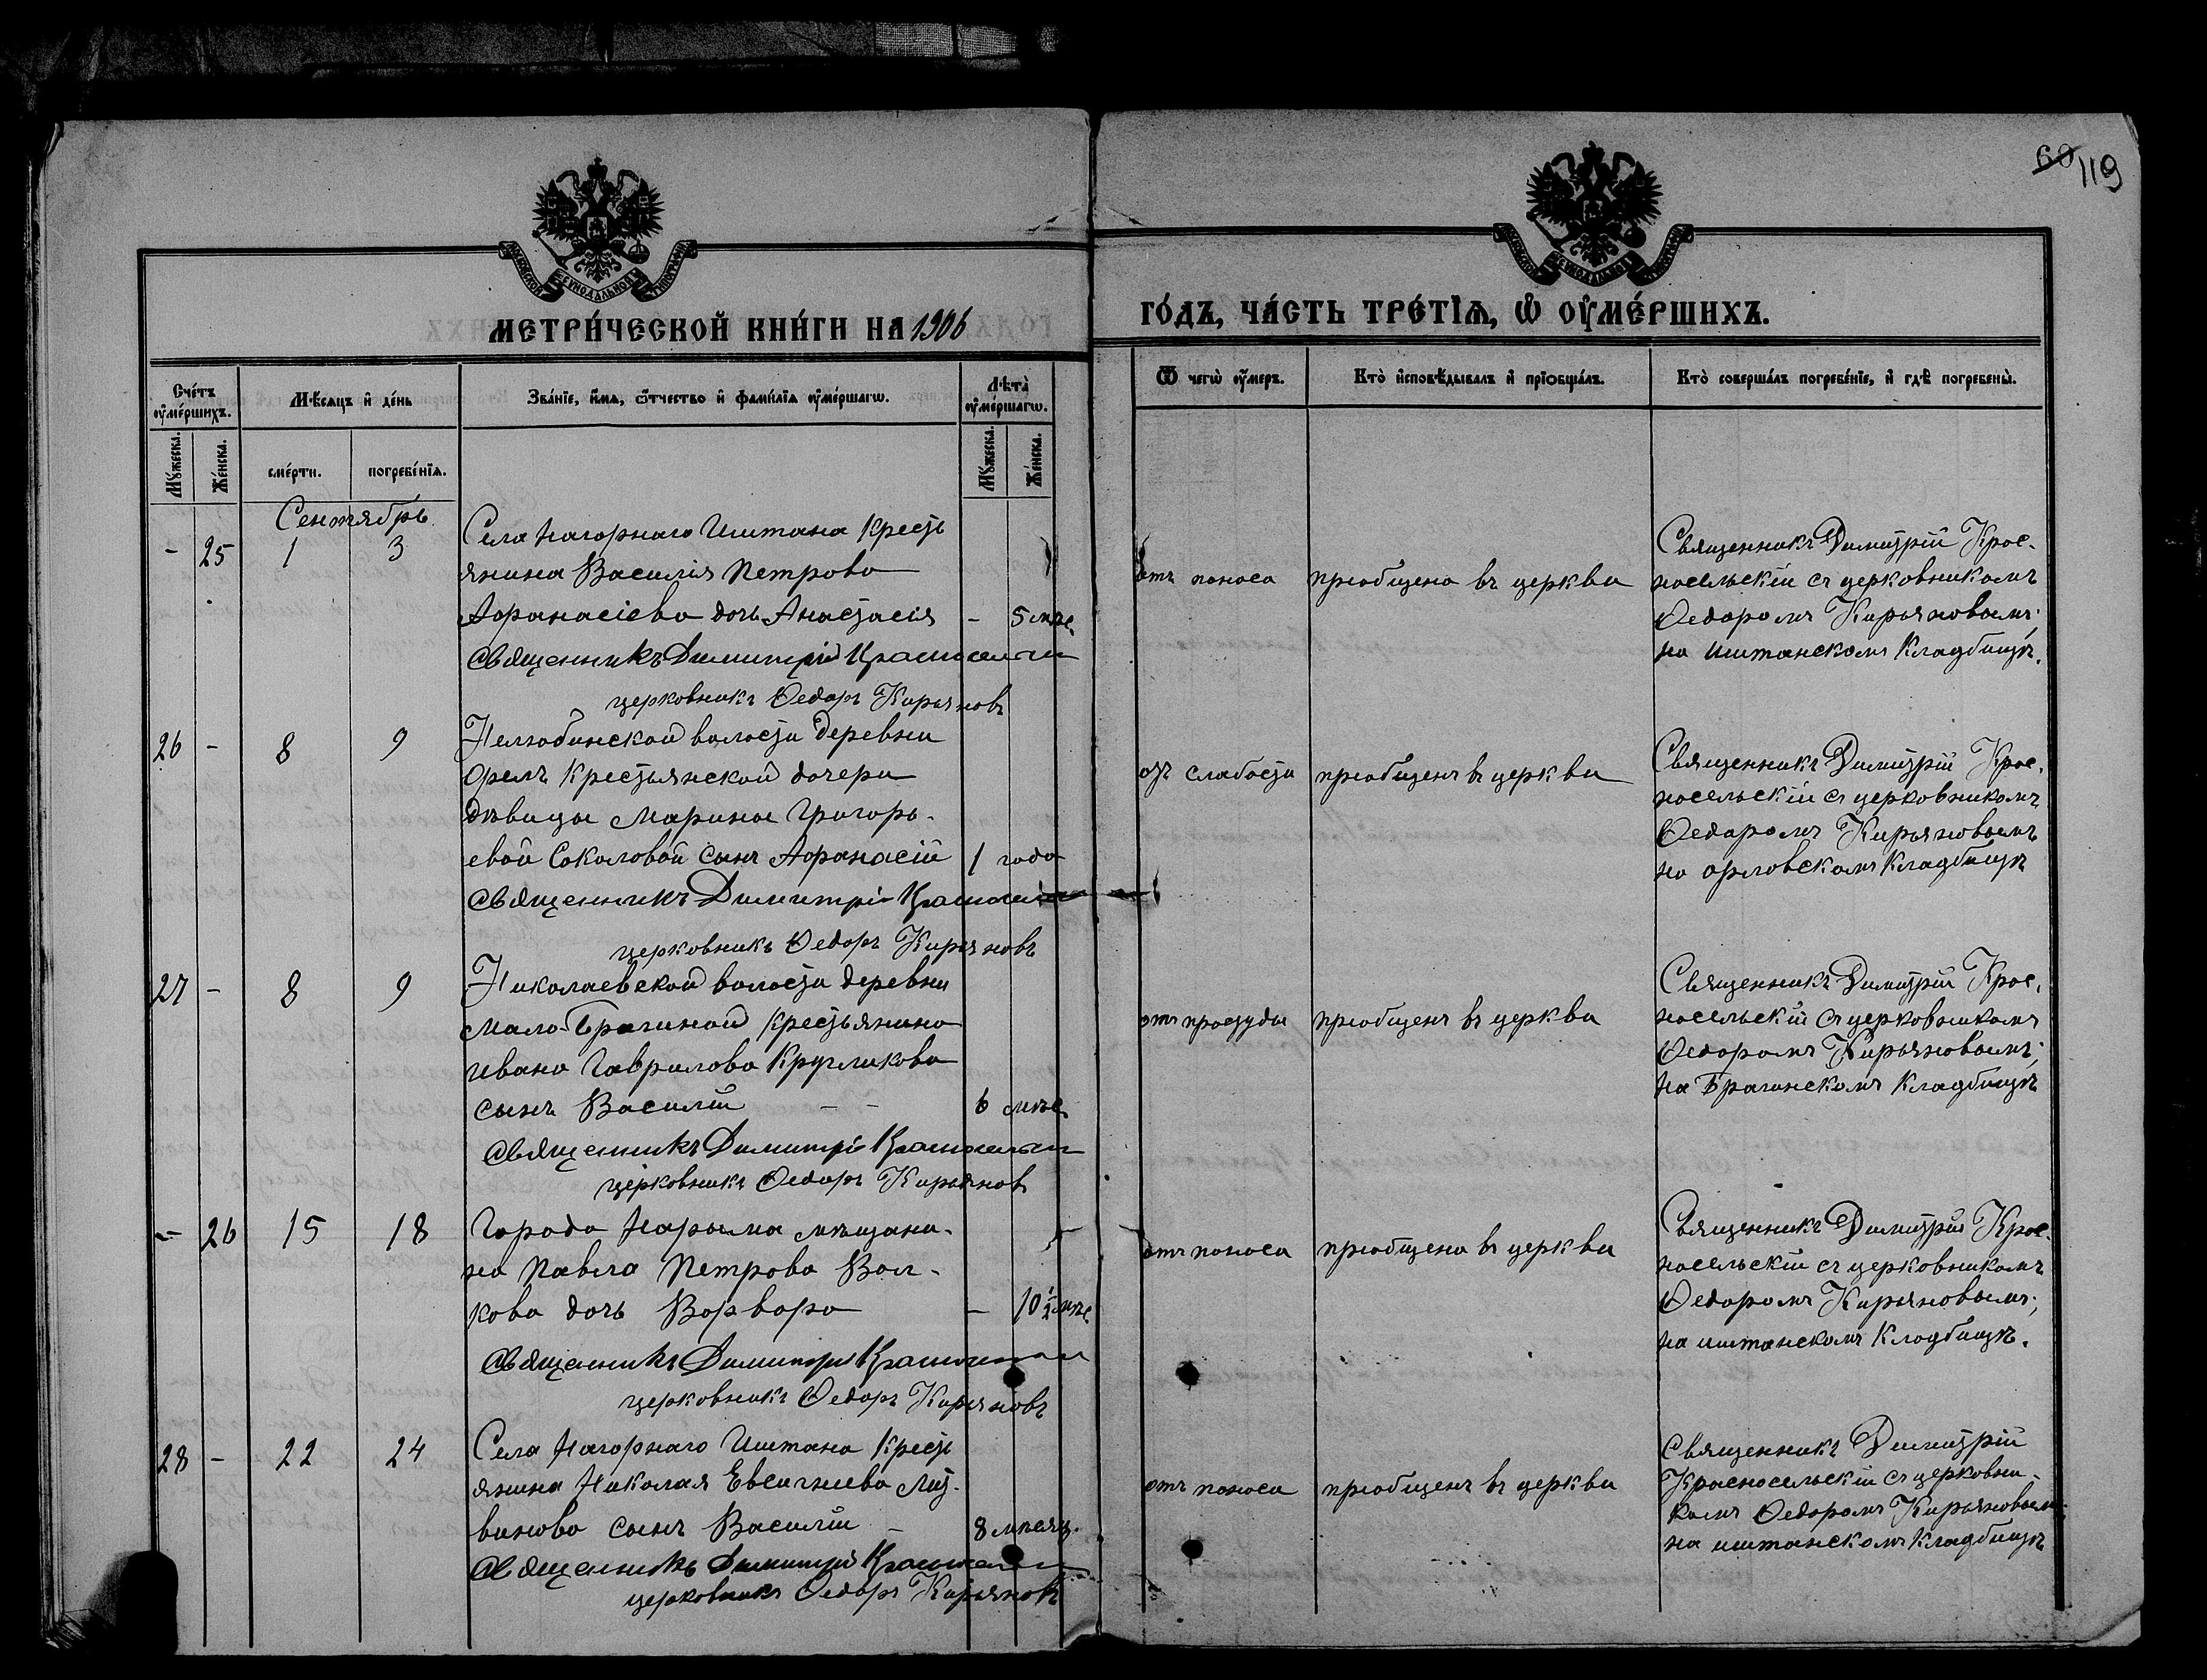 60 119
МЕТРИ́ЧЕСКОЙ КНИ́ГИ НА 1906
ГО́ДЪ, ЧА́СТЬ ТРЕ́ТІѦ, Ѡ҆ ОУ҆МЕ́РШИХЪ.
Сче́тъ оу҆ме́ршихъ.
Мѣ́сяцъ и҆ де́нь
Зва́нїе, и҆́мѧ, ѻ҆́тчество и҆ фами́лїѧ оу҆ме́ршагѡ.
Лѣ́та̀ оу҆ме́ршагѡ.
Ѿ чегѡ̀ оу҆́меръ.
Кто̀ и҆сповѣ́дывалъ и҆ прїѡбща́лъ.
Кто̀ соверша́лъ погребе́нїе, и҆ гдѣ̀ погребены̀.
Мꙋ́жеска.
Же́нска.
сме́рти.
погребе́нїѧ.
Мꙋ́жеска.
Же́нска.
Сентябрь
- 25 1 3
Села Нагорнаго Иштана Кресть
янина Василія Петрова
Афанасіева дочь Анастасія - 5 мѣс.
Священникъ Димитрій Красносельскій
церковникъ Ѳедоръ Кирьяновъ
отъ поноса
пріобщена въ церкви
Священникъ Димитрій Крас-
носельскій съ церковникомъ
Ѳедоромъ Кирьяновымъ;
на иштанскомъ кладбищѣ.
26 - 8 9
Нелюбинской волости деревни
Орелъ крестьянской дочери
дѣвицы Марины Григорь-
евой Соколовой сынъ Афанасій 1 года
Священникъ Димитрій Красносельскій
церковникъ Ѳедоръ Кирьяновъ
отъ слабости
пріобщенъ въ церкви
Священникъ Димитрій Крас-
носельскій съ церковникомъ
Ѳедоромъ Кирьяновымъ
на орловскомъ кладбищѣ
27 - 8 9
Николаевской волости деревни
Мало-Брагиной крестьянина
Ивана Гаврилова Кругликова
сынъ Василій - - 6 мѣс.
Священникъ Димитрій Красносельскій
церковникъ Ѳедоръ Кирьяновъ
отъ простуды
пріобщенъ въ церкви
Священникъ Димитрій Крас-
носельскій съ церковникомъ
Ѳедоромъ Кирьяновымъ;
на Брагинскомъ кладбищѣ
- 26 15 18
Города Нарыма мѣщани-
на Павла Петрова Вол-
кова дочь Варвара - 10 1/2 мѣс.
Священникъ Димитрій Красносельскій
церковникъ Ѳедоръ Кирьяновъ
отъ поноса
пріобщена въ церкви
Священникъ Димитрій Крас-
носельскій съ церковникомъ
Ѳедоромъ Кирьяновымъ;
на иштанскомъ кладбищѣ.
28 - 22 24
Села Нагорнаго Иштана Кресть
янина Николая Евсигнеева Лит-
винова сынъ Василій - 8 мѣсяц.
Священникъ Димитрій Красносельскій
церковникъ Ѳедоръ Кирьяновъ
отъ поноса
пріобщенъ въ церкви
Священникъ Димитрій
Красносельскій съ церковни-
комъ Ѳедоромъ Кирьяновымъ
на иштанскомъ кладбищѣ